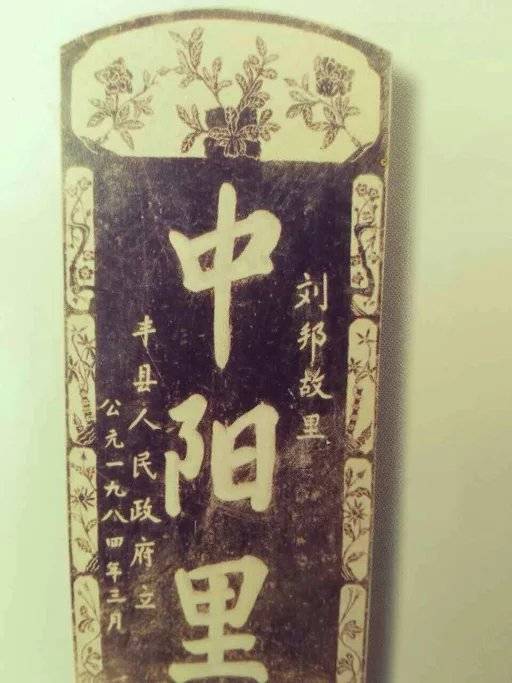 刘邦故里
中阳里
丰县人民政府立
公元一九八四年三月